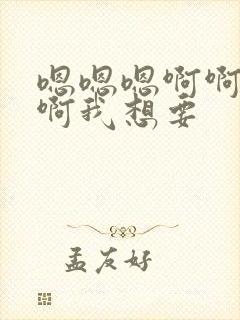 嗯嗯嗯啊啊
啊我想要
孟友好